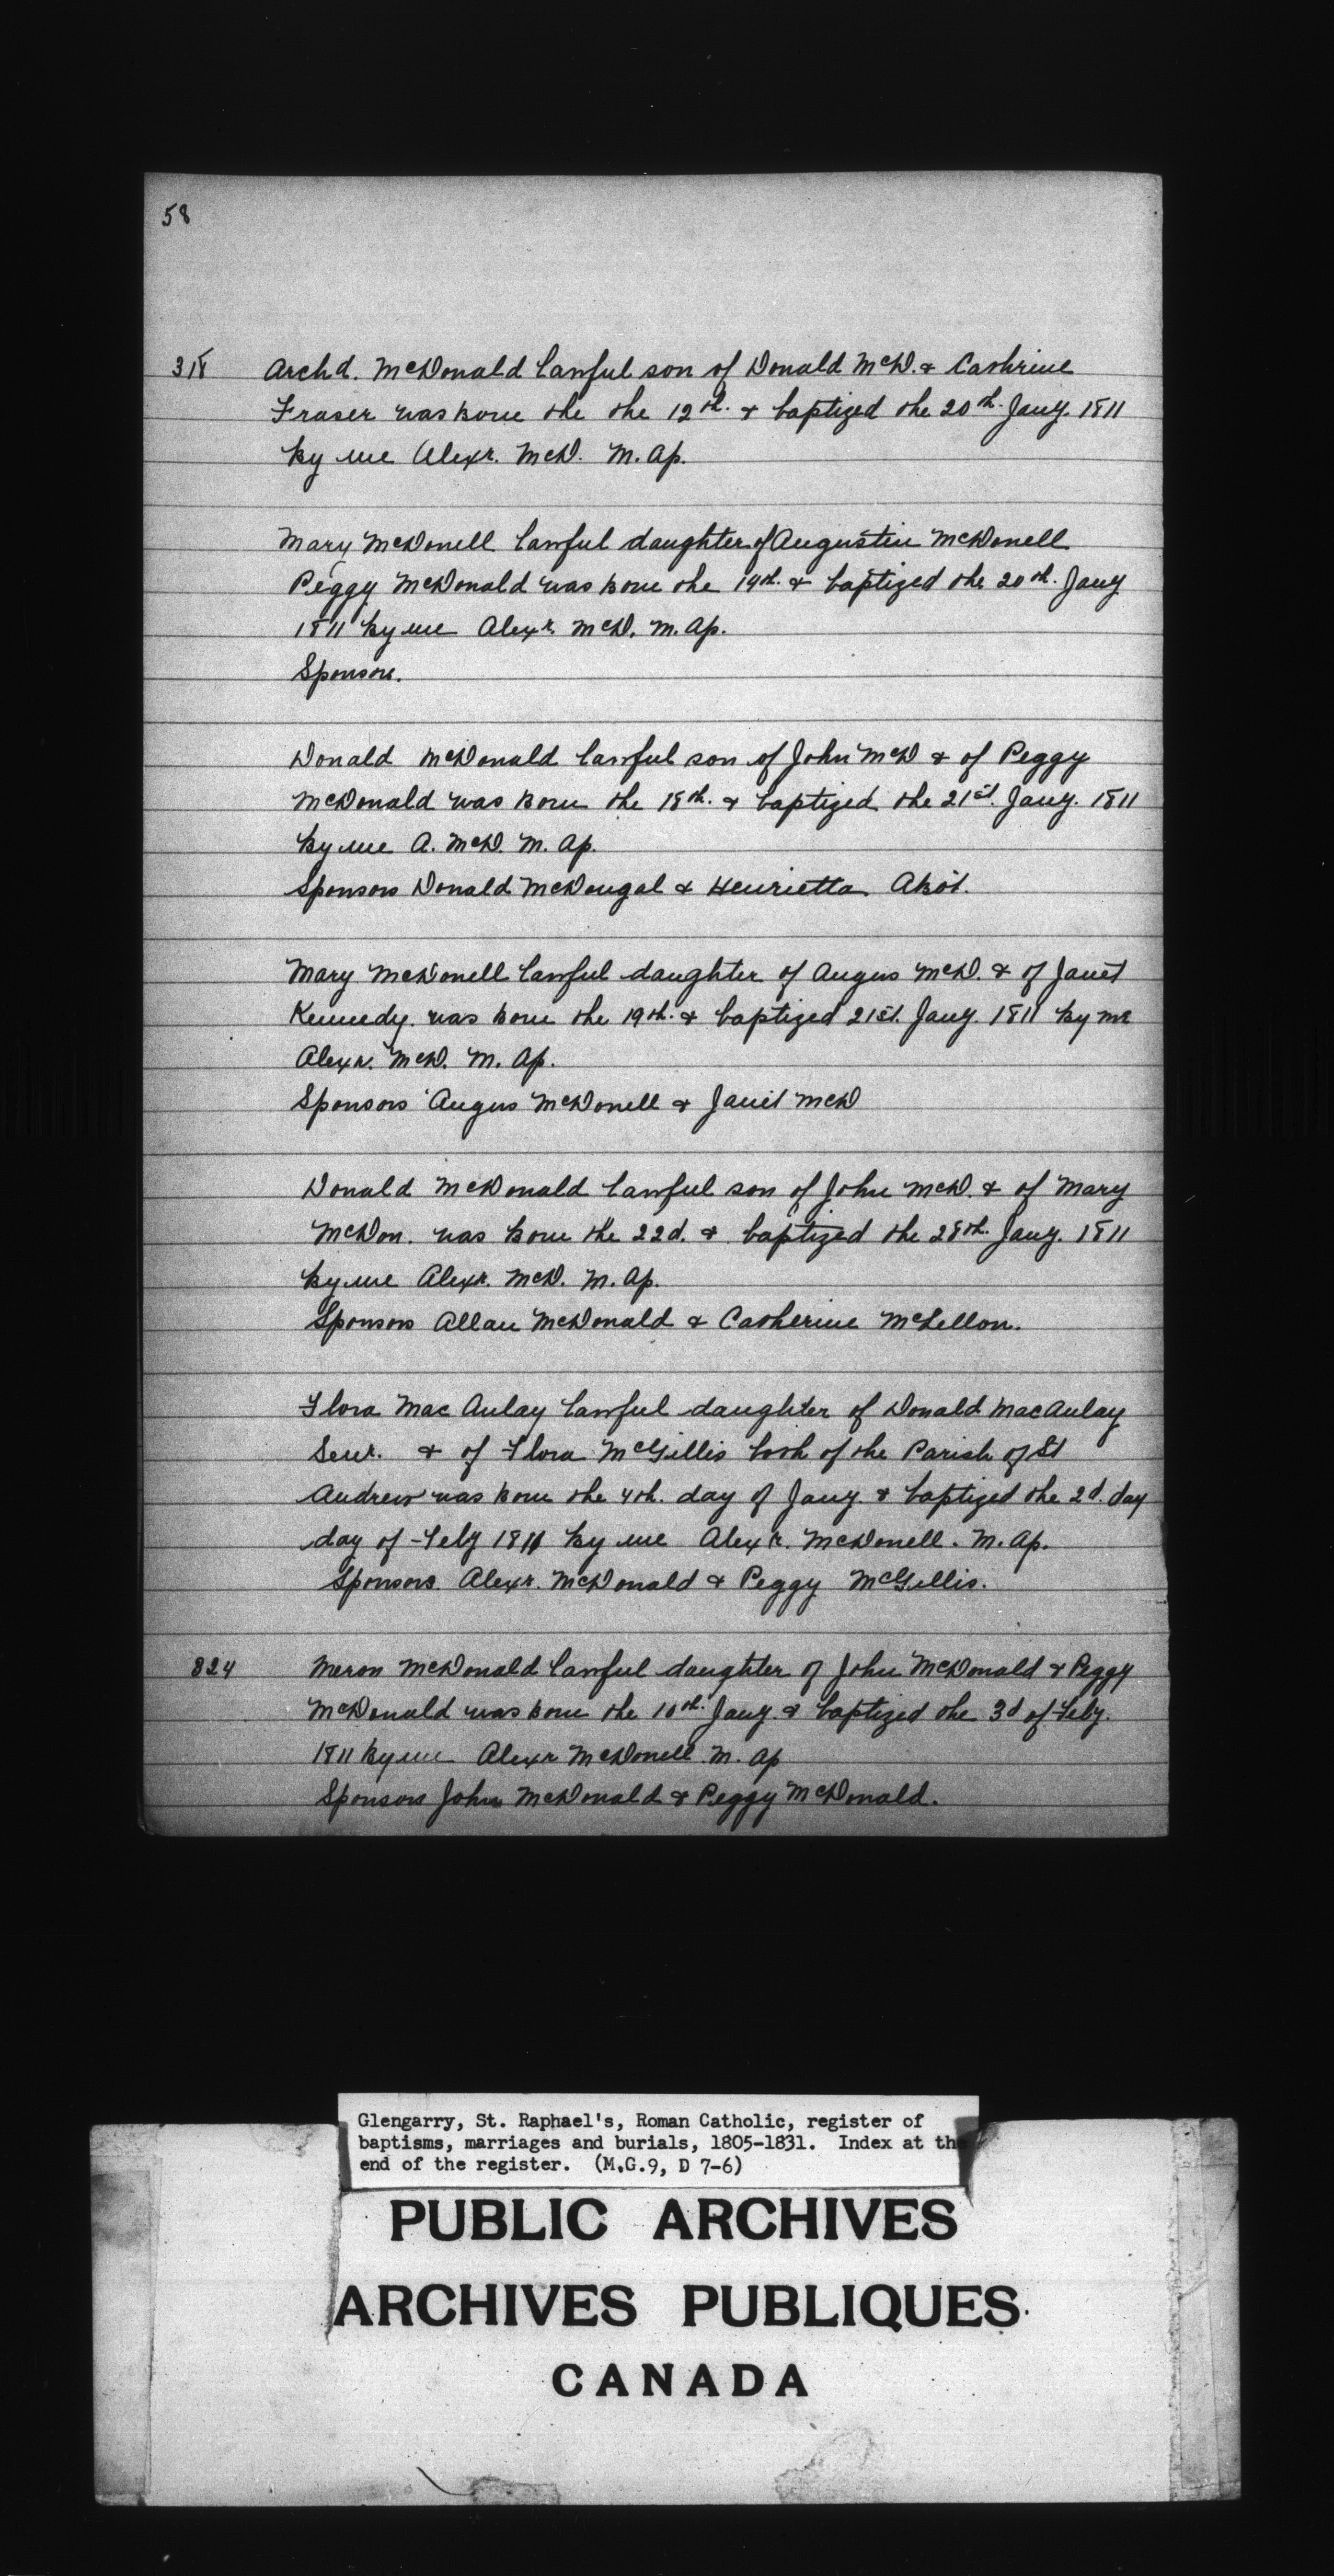 58
318 Archd. McDonald lawful son of Donald McD. & Cathrine
Fraser was born the the 12th. & baptized the 20th. Jany. 1811
by me Alexr. McD. M. Ap.
Mary McDonell lawful daughter of Augustin McDonell
Peggy McDonald was born the 19th. & baptized the 20th. Jany
1811 by me Alexr. McD. M. Ap.
Sponsors.
Donald McDonald lawful son of John McD & of Peggy
McDonald was born the 18th. & baptized the 21st. Jany. 1811
by me A. McD. M. Ap.
Sponsors Donald McDougal & Henrietta
Mary McDonell lawful daughter of Angus McD. & of Janet
Kennedy. was born the 19th. & baptized 21st. Jany. 1811 by me
Alexr. McD. M. Ap.
Sponsors Angus McDonell & Janet McD
Donald McDonald lawful son of John McD. & of Mary
McDon. was born the 22d. & baptized the 28th. Jany. 1811
by me Alexr. McD. M. Ap.
Sponsors Allan McDonald & Catherine McLellon.
Flora Mac Aulay lawful daughter of Donald MacAulay
Senr. & of Flora McGillis both of the Parish of St
Andrew was born the 4th. day of Jany. & baptized the 2d. day
day of Feby 1811 by me Alexr. McDonell. M. Ap.
Sponsors. Alexr. McDonald & Peggy McGillis.
824 Meron McDonald lawful daughter of John McDonald & Peggy
McDonald was born the 10th. Jany. & baptized the 3d of Feby.
1811 by me Alexr McDonell M. Ap
Sponsors John McDonald & Peggy McDonald.
Glengarry, St. Raphael's, Roman Catholic, register of
baptisms, marriages and burials, 1805-1831. Index at the
end of the register. (M.G.9, D 7-6)
PUBLIC ARCHIVES
ARCHIVES PUBLIQUES
CANADA